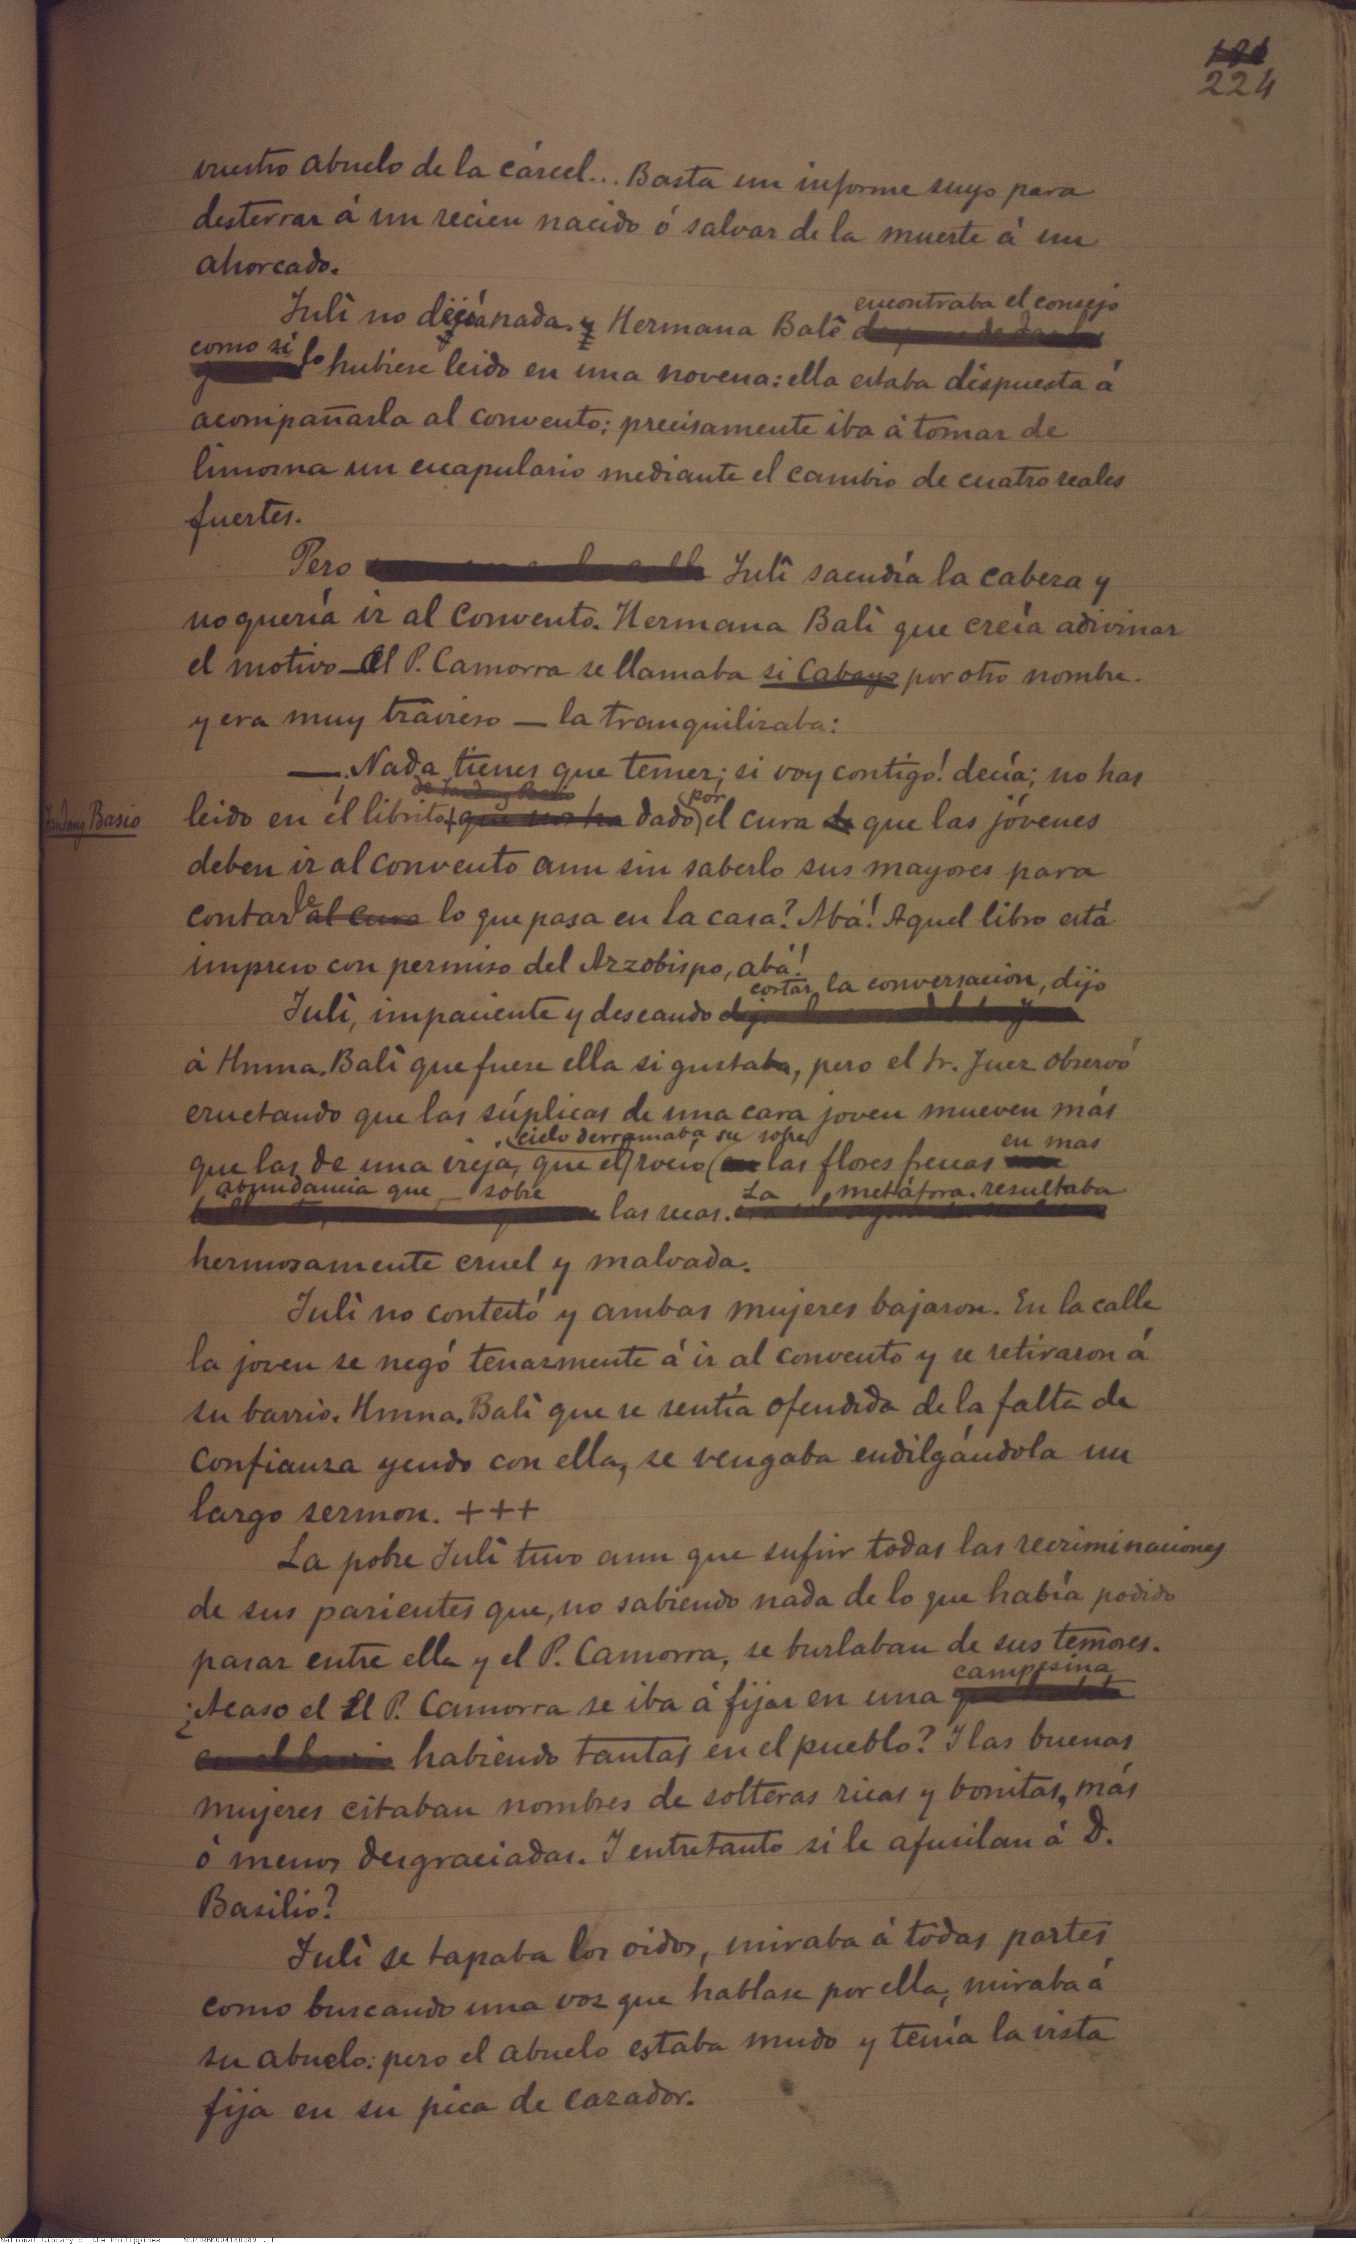 224
vuestro abuelo de la cárcel... Basta un informe suyo para
desterrar á un recien nacido ó salvar de la muerte á un
ahorcado.
encontraba el consejo
Julî no decía nada y Hermana Balê
como si lo hubiese leido en una novena: ella estaba dispuesta á
acompañarla al convento; precisamente iba á tomar de
limosna un escapulario mediante el cambio de cuatro reales
fuertes.
Pero Julî sacudía la cabeza y
no quería ir al convento. Hermana Balî que creía adivinar
el motivo — el P. Camorra se llamaba si Cabayo por otro nombre
y era muy travieso — la tranquilizaba:
— Nada tienes que temer; si voy contigo! decía; no has
de Tandang Basio
Tandang Basio
leido en el librito que nos ha dado por el cura que las jóvenes
deben ir al convento aun sin saberlo sus mayores para
contarle al cura lo que pasa en la casa? Abá! Aquel libro está
impreso con permiso del Arzobispo, abá!
cortar la conversacion, dijo
Julî, impaciente y deseando
á Hmna. Balî que fuese ella si gustaba, pero el Sr. Juez observó
eructando que las súplicas de una cara joven mueven más
cielo derramaba su sobre
en mas
que las de una vieja, que el rocío las flores frescas
abundancia que sobre
La metáfora resultaba
las secas.
hermosamente cruel y malvada.
Julî no contestó y ambas mujeres bajaron. En la calle
la joven se negó tenazmente á ir al convento y se retiraron á
su barrio. Hmna. Balî que se sentía ofendida de la falta de
confianza yendo con ella, se vengaba endilgándola un
largo sermon. +++
La pobre Julî tuvo aun que sufrir todas las recriminaciones
de sus parientes que, no sabiendo nada de lo que había podido
pasar entre ella y el P. Camorra, se burlaban de sus temores.
campesina
¿Acaso el El P. Camorra se iba á fijar en una
en el barrio habiendo tantas en el pueblo? Y las buenas
mujeres citaban nombres de solteras ricas y bonitas, más
ó menos desgraciadas. Y entretanto si le afusilan á D.
Basilio?
Julî se tapaba los oidos, miraba á todas partes
como buscando una voz que hablase por ella, miraba á
su abuelo: pero el abuelo estaba mudo y tenía la vista
fija en su pica de cazador.